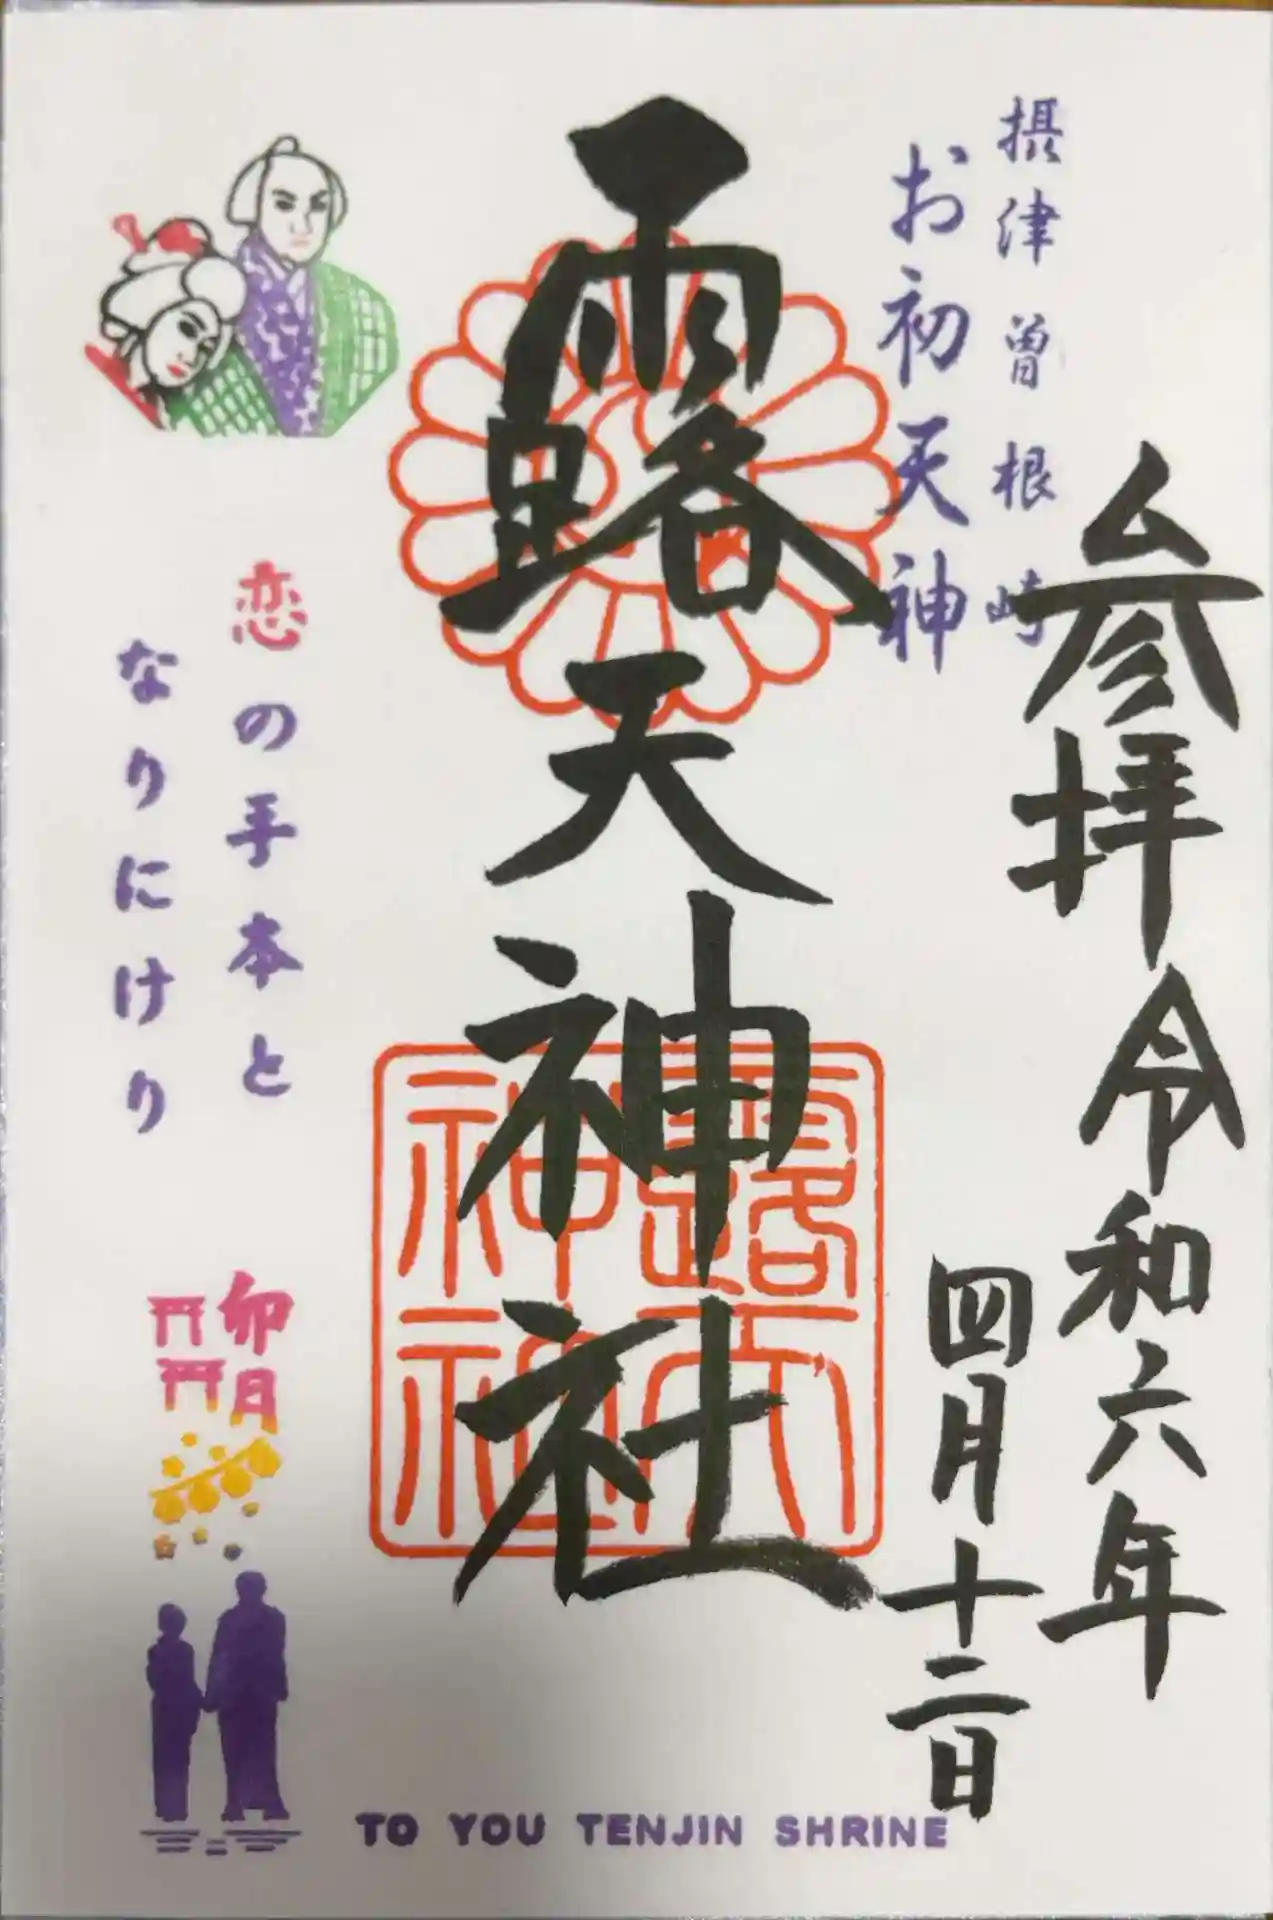 参拝 令和六年
四月十二日
摂津曽根崎
お初天神
露天神社
露天
神社
恋の手本と
なりにけり
卯月
TO YOU TENJIN SHRINE